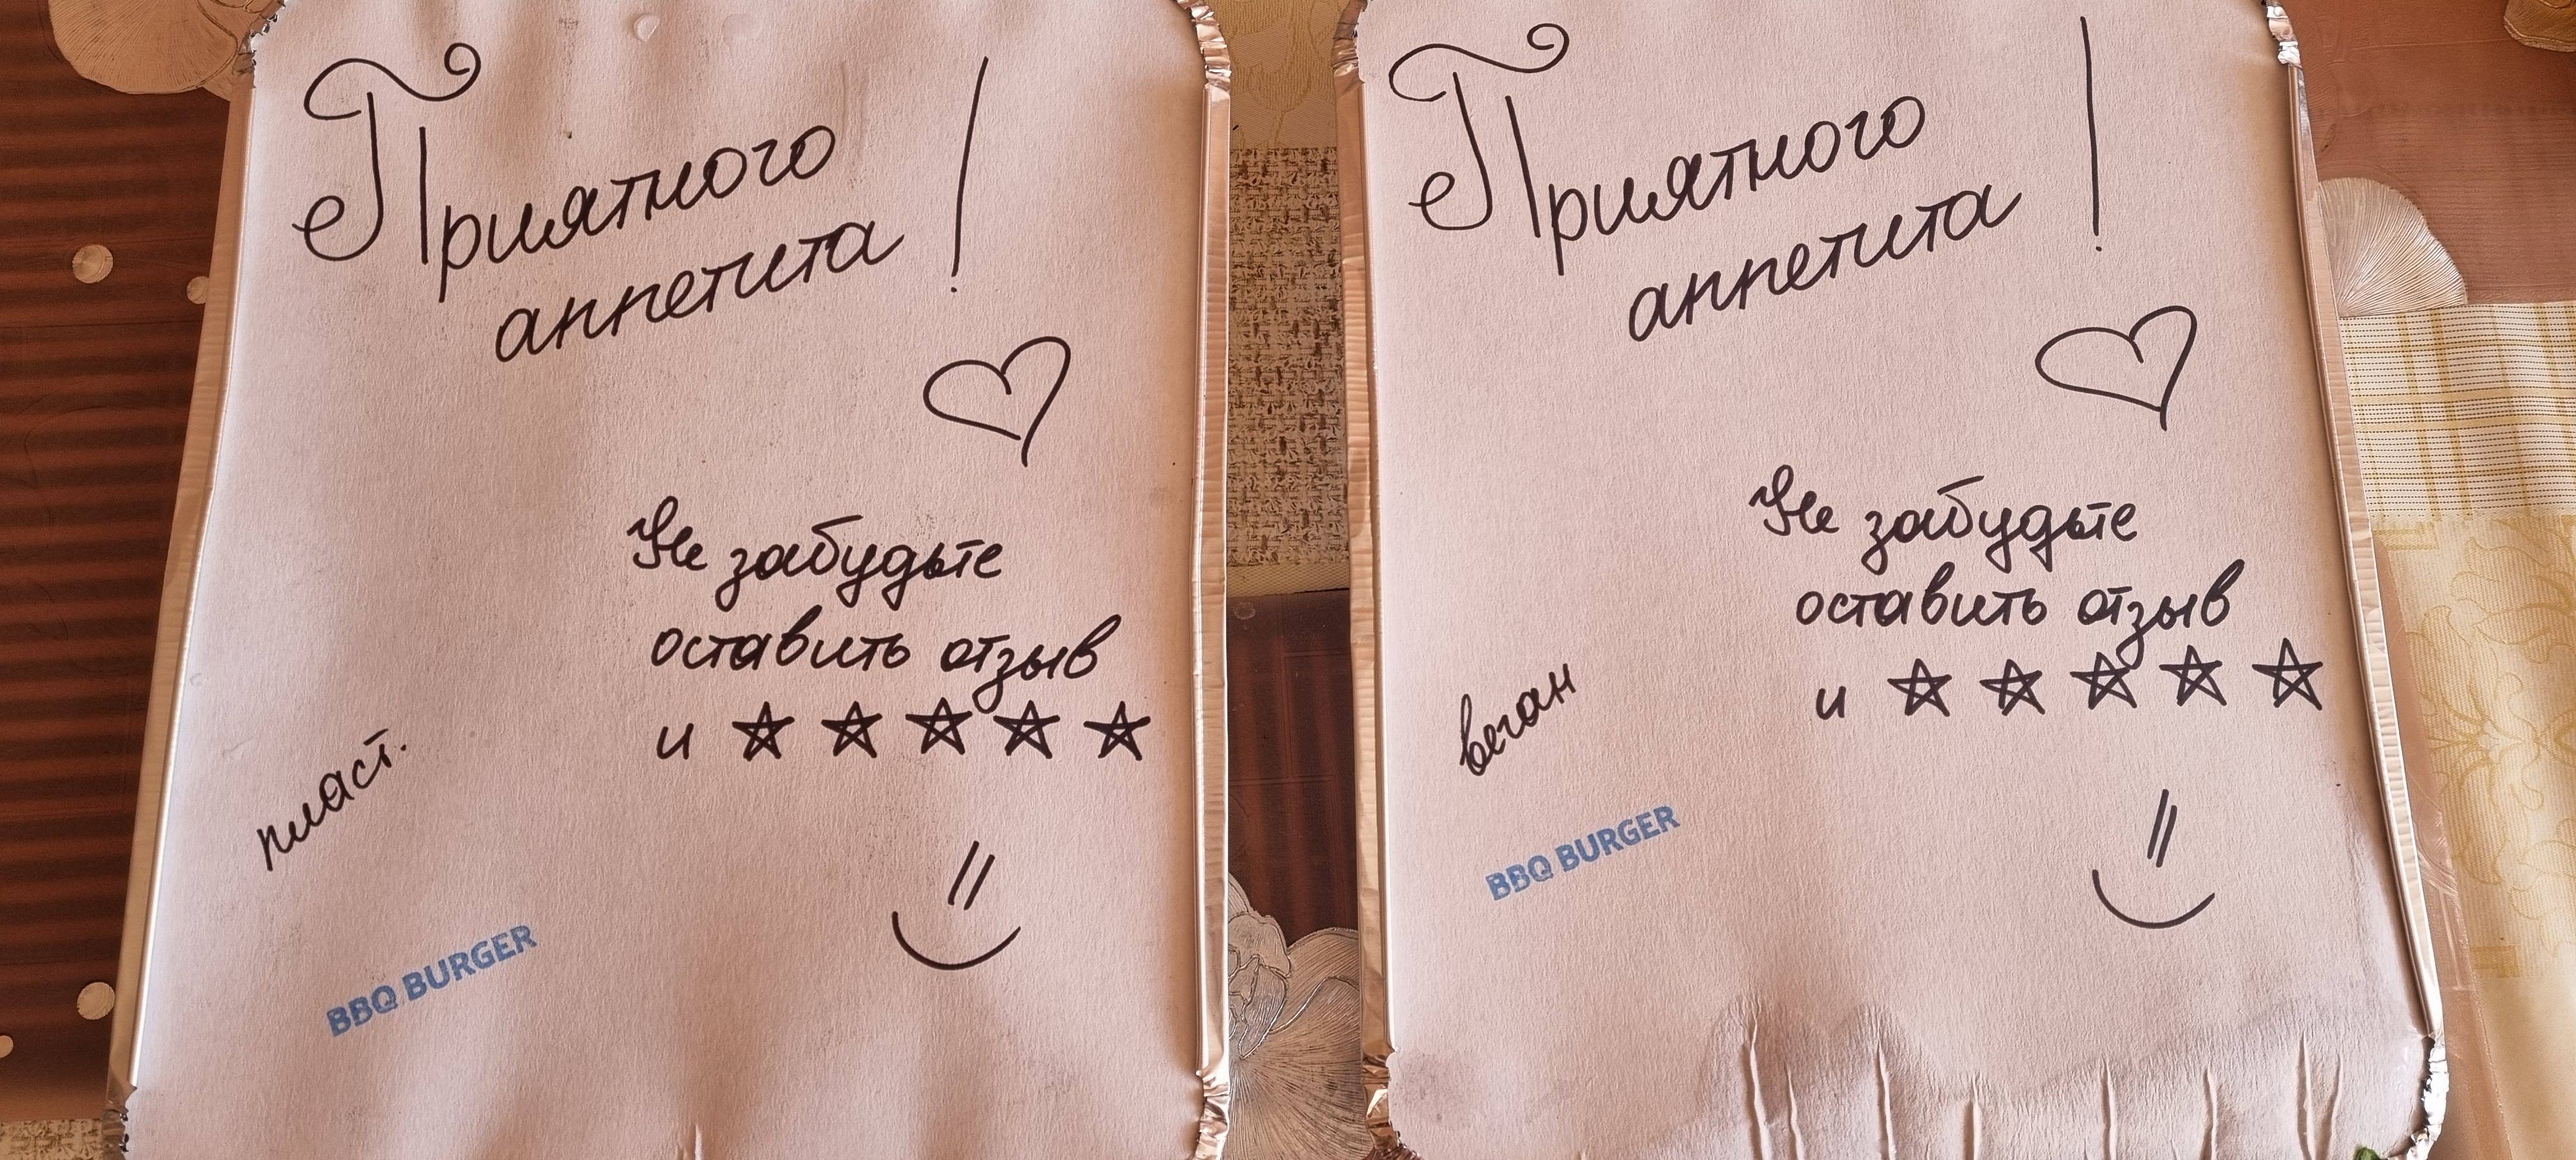 Приятного
аппетита !
Не забудьте
оставить отзыв
и ☆ ☆ ☆ ☆ ☆
пласт.
BBQ BURGER
Приятного
аппетита !
Не забудьте
оставить отзыв
и ☆ ☆ ☆ ☆ ☆
веган
BBQ BURGER